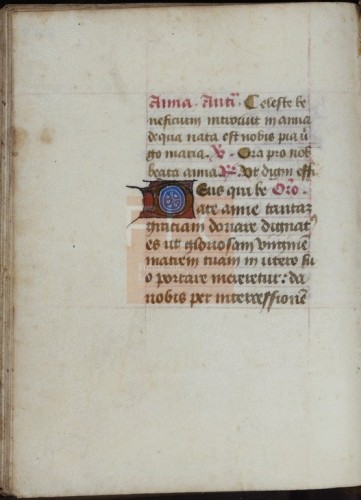 Anna. Antī. Celeste be
neficium introiuit in anna
de qua nata est nobis pia ūi
go maria. ℣. Ora pro nob
beata anna. ℟. Ut digni effi
Deus qui be Oro.
ate anne tantaz
gratiam donare dignat᷒
es ut gloriosam virginē
matrem tuam in utero su
o portare mereretur: da
nobis per intercessionē